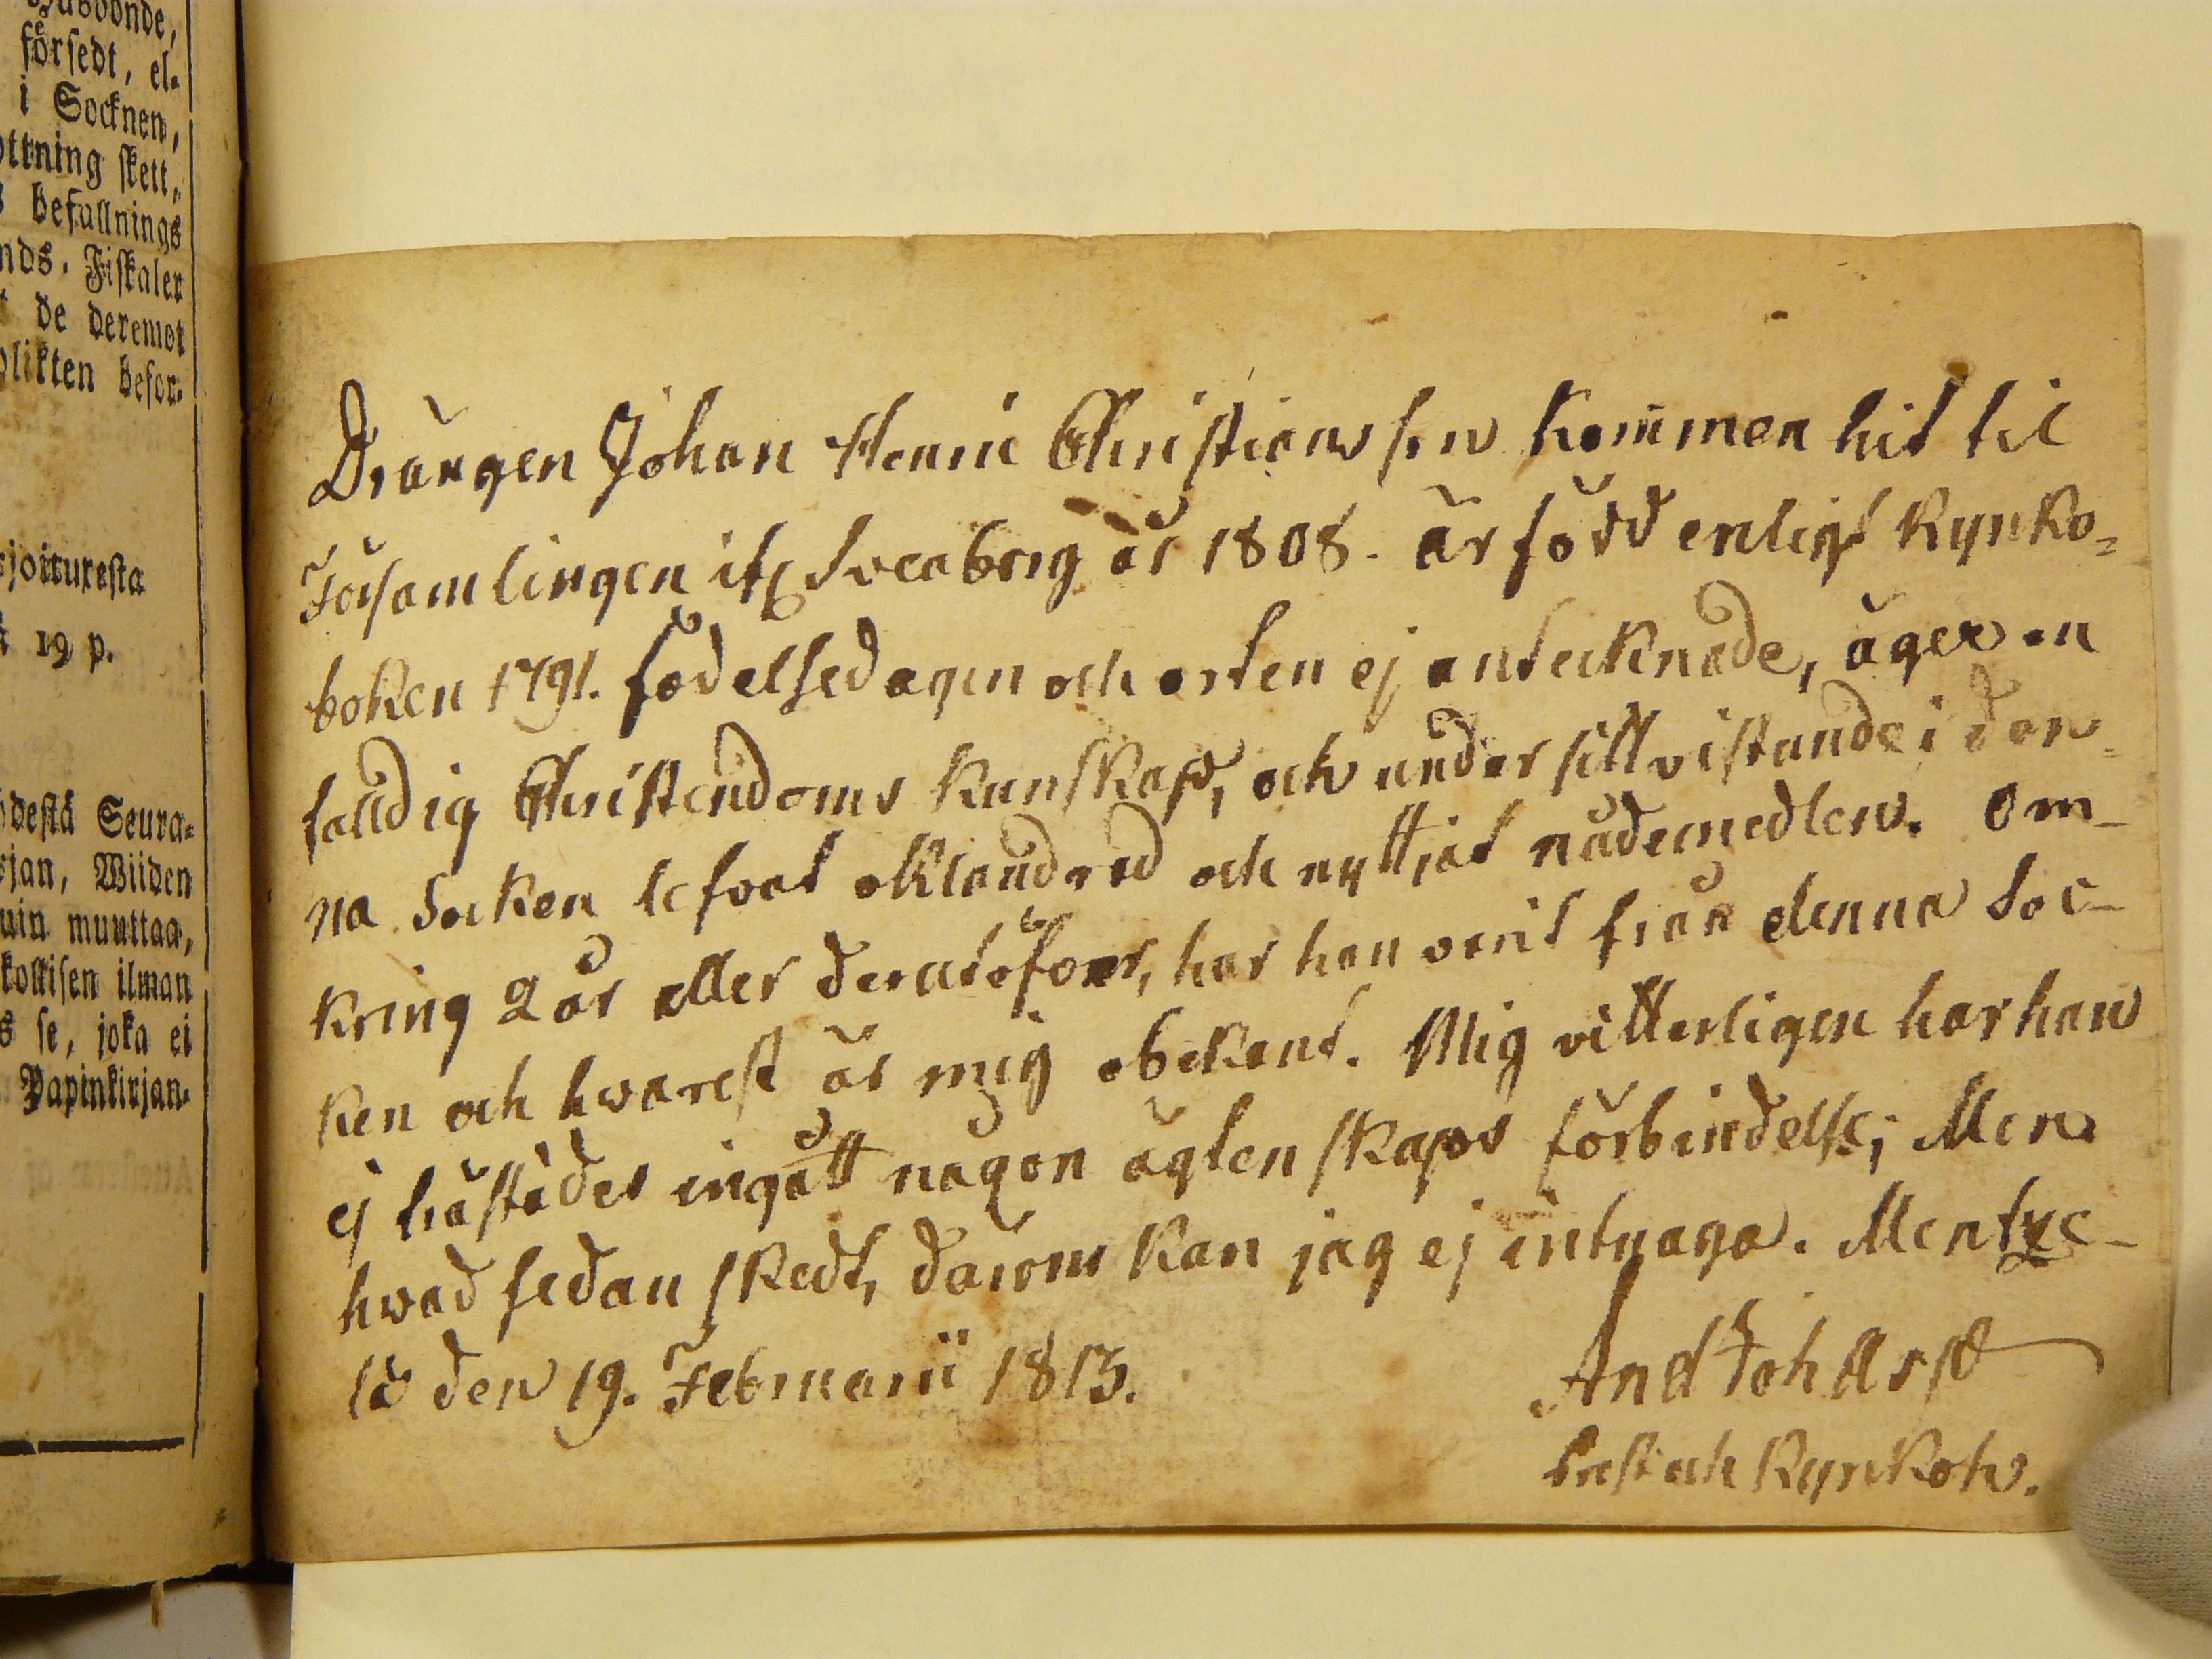 förfedt, el-
i Socknen,
ottning skett,
befallnings
nds. Fiskaler
de deremot
plikten befor-
joituxesta
19 p.
destä Seura-
jan, Wiiden
uin muuttaa,
kollisen ilman
s se, joka ei
Papinkirjan-
Drängen Johan Henric Christiansson kommen hit til
Församlingen ifr Sveaborg år 1808. är född enligt Kyrko=
boken 1791. födelsedagen och orten ej antecknade, äger en
falldig Christendoms kunskap, och under sitt vistande i den-
na Socken lefvat oklandrad och nyttjat nådemedlen. Om-
kring 2 år eller derutöfver, har han varit från denna Soc-
ken och hwarest är mig obekant. Mig vitterligen har han
ej härstädes ingått någon ägtenskaps förbindelse; Men
hwad sedan skedt, därom kan jag ej intyga. Mentze-
lä den 19. Februarii 1813.
And Joh Asp
Past och Kyrkoh.